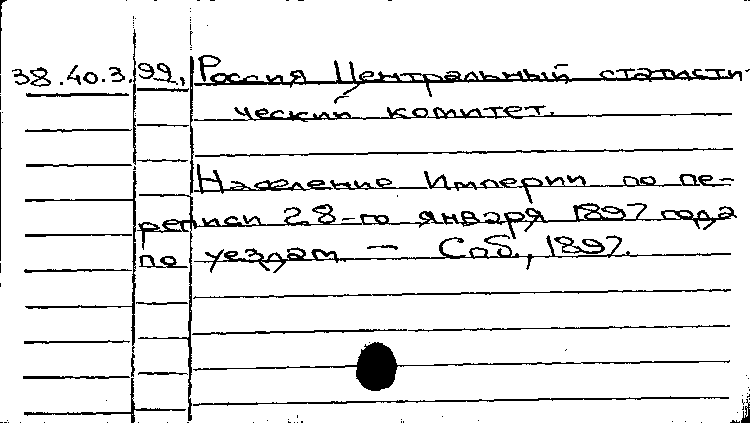 38.40.3.99. Россия Центральный статисти-
ческий комитет.
Население Империи по пе-
реписи 28-го января 1897 года
по уездам. — Спб., 1897.